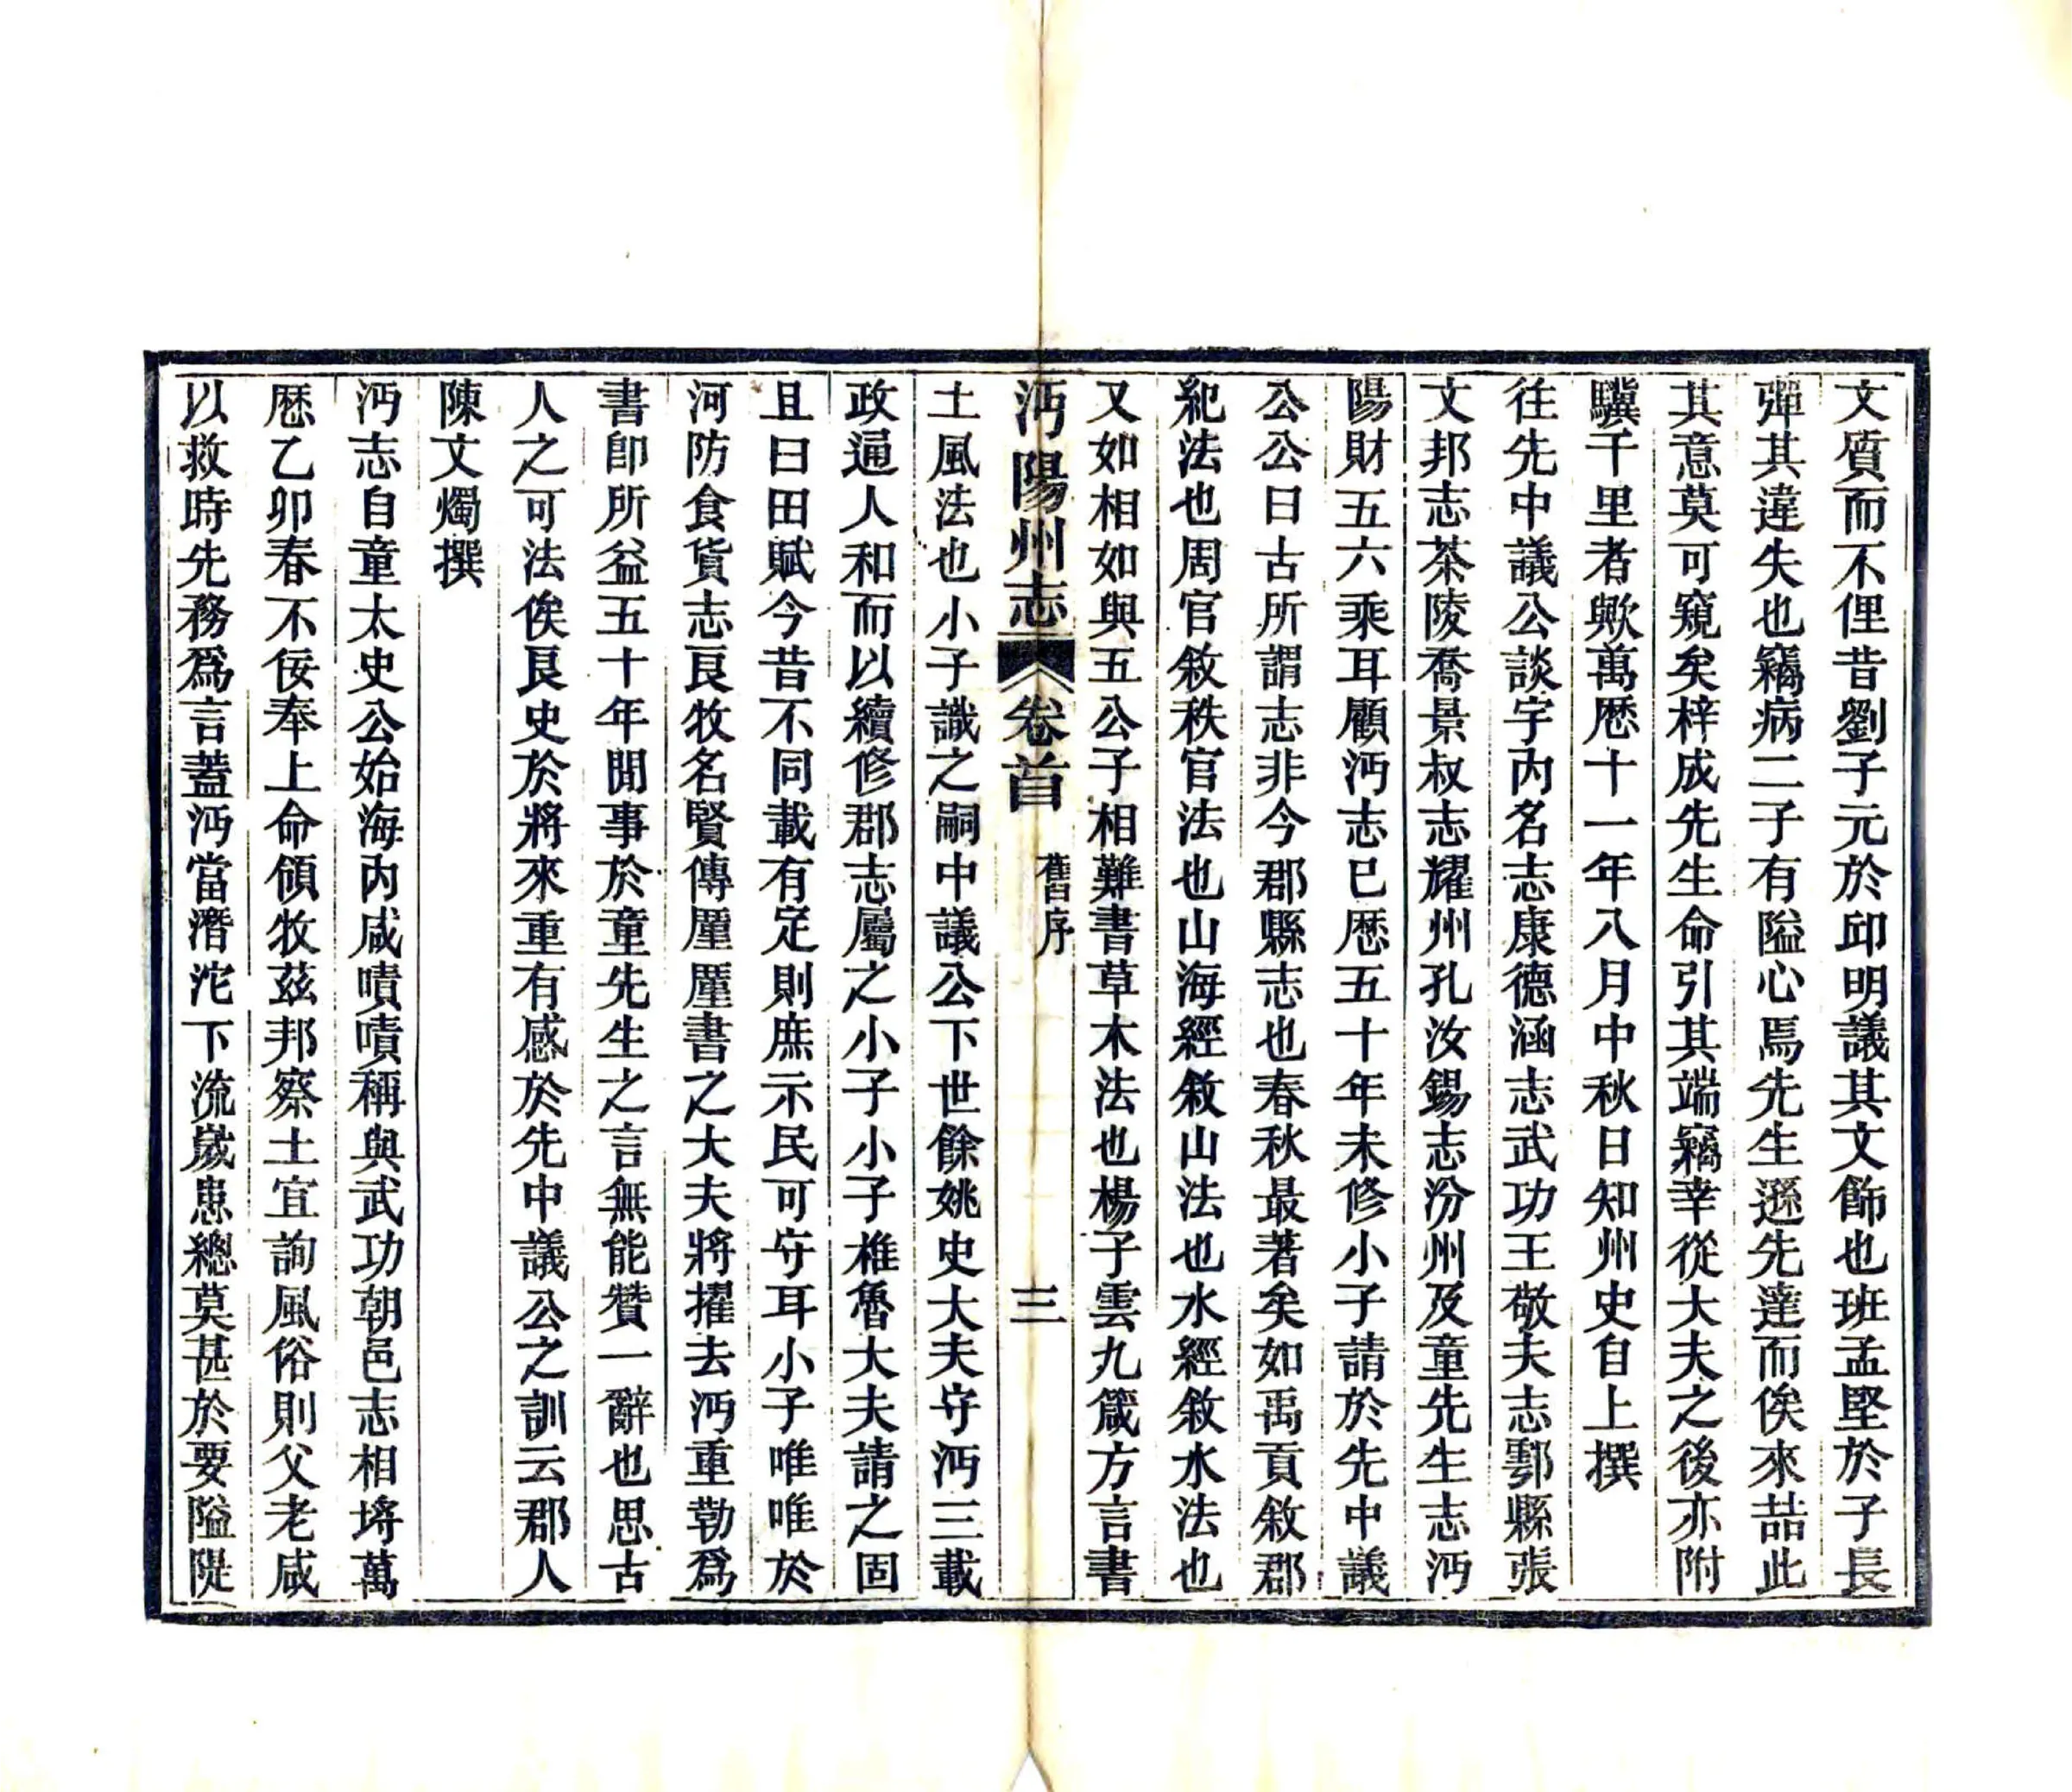 文質而不俚昔劉子元於邱明議其文飾也班孟堅於子長
彈其違失也竊病二子有隘心焉先生遜先達而俟來喆此
其意莫可窺矣梓成先生命引其端竊幸從大夫之後亦附
驥千里者歟萬厯十一年八月中秋日知州史自上撰
往先中議公談宇內名志康德涵志武功王敬夫志鄠縣張
文邦志茶陵喬景叔志耀州孔汝錫志汾州及童先生志沔
陽財五六乘耳顧沔志已厯五十年未修小子請於先中議
公公曰古所謂志非今郡縣志也春秋最著矣如禹貢敘郡
紀法也周官敘秩官法也山海經敘山法也水經敘水法也
又如相如與五公子相難書草木法也楊子雲九箴方言書
沔陽州志 卷首 舊序 三
土風法也小子識之嗣中議公下世餘姚史大夫守沔三載
政通人和而以續修郡志屬之小子小子椎魯大夫請之固
且曰田賦今昔不同載有定則庶示民可守耳小子唯唯於
河防食貨志良牧名賢傳厪厪書之大夫將擢去沔重勒爲
書卽所益五十年間事於童先生之言無能贊一辭也思古
人之可法俟良史於將來重有感於先中議公之訓云郡人
陳文燭撰
沔志自童太史公始海內咸嘖嘖稱與武功朝邑志相埒萬
厯乙卯春不佞奉上命領牧茲邦察土宜詢風俗則父老咸
以救時先務爲言蓋沔當潛沱下流歲患總莫甚於要隘隄